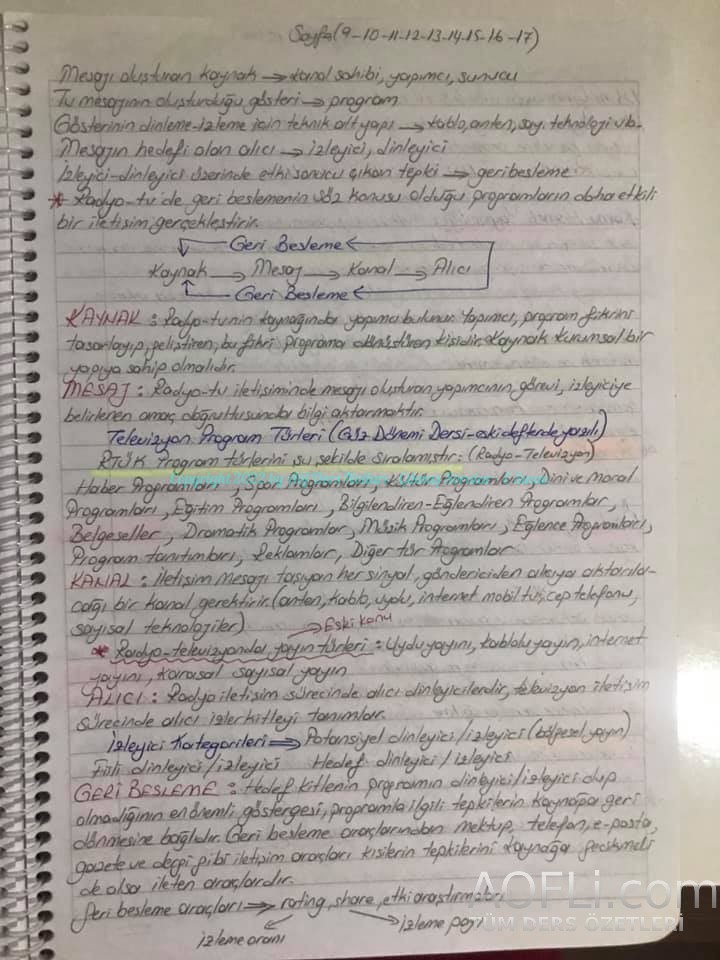 Sayfa (9-10-11-12-13-14-15-16-17)
Mesajı oluşturan kaynak → kanal sahibi, yapımcı, sunucu
Tv mesajının oluşturduğu gösteri → program
Gösterinin dinleme-izleme için teknik alt yapı → kablo, anten, say. teknoloji vb.
Mesajın hedefi olan alıcı → izleyici, dinleyici
İzleyici-dinleyici üzerinde etki sonucu çıkan tepki → geribesleme
* Radyo-tv'de geri beslemenin söz konusu olduğu programların daha etkili
bir iletişim gerçekleştirir.
Geri Besleme
Kaynak → Mesaj → Kanal → Alıcı
Geri Besleme
KAYNAK : Radyo-tv'nin kaynağında yapımcı bulunur. Yapımcı, program fikrini
tasarlayıp, geliştiren, bu fikri programa dönüştüren kişidir. Kaynak kurumsal bir
yapıya sahip olmalıdır.
MESAJ : Radyo-tv iletişiminde mesajı oluşturan yapımcının, görevi, izleyiciye
belirlenen amaç doğrultusunda bilgi aktarmaktır.
Televizyon Program Türleri (Güz Dönemi Dersi-eski defterde yazılı)
RTÜK Program türlerini şu şekilde sıralamıştır: (Radyo-Televizyon)
Haber Programları, Spor Programları, Kültür Programları, Dini ve Moral
Programları, Eğitim Programları, Bilgilendiren-Eğlendiren Programlar,
Belgeseller, Dramatik Programlar, Müzik Programları, Eğlence Programları,
Program tanıtımları, Reklamlar, Diğer tür Programlar
KANAL : İletişim mesajı taşıyan her sinyal, göndericiden alıcıya aktarıla-
cağı bir kanal gerektirir. (anten, kablo, uydu, internet mobil tv, cep telefonu,
sayısal teknolojiler)
→ Eski konu
* Radyo-televizyonda yayın türleri : Uydu yayını, kablolu yayın, internet
yayını, karasal sayısal yayın
ALICI : Radyo iletişim sürecinde alıcı dinleyicilerdir, televizyon iletişim
sürecinde alıcı izlerkitleyi tanımlar.
İzleyici Kategorileri ⇒ Potansiyel dinleyici/izleyici (bölgesel yayın)
Fiili dinleyici/izleyici Hedef dinleyici/izleyici
GERİ BESLEME : Hedef kitlenin programın dinleyici/izleyici olup
olmadığının en önemli göstergesi, programla ilgili tepkilerin kaynağa geri
dönmesine bağlıdır. Geri besleme araçlarından mektup, telefon, e-posta,
gazete ve dergi gibi iletişim araçları kişilerin tepkilerini kaynağa gecikmeli
de olsa ileten araçlardır.
Geri besleme araçları → rating, share, etki araştırmaları
izleme oranı izleme payı
AOFLi.com
TÜM DERS ÖZETLERİ